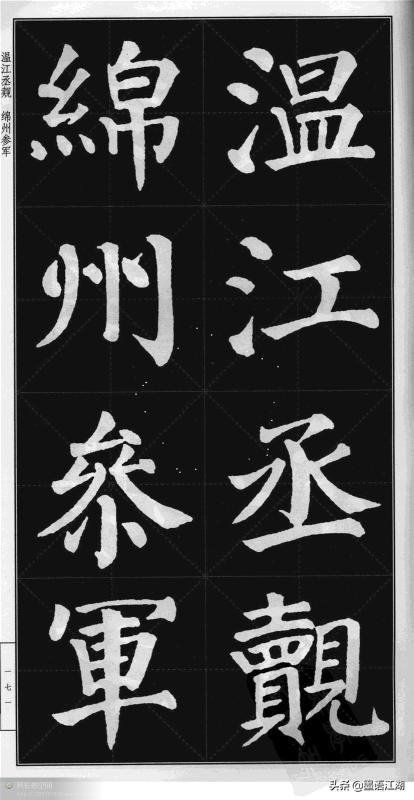 温江丞覿
綿州參軍
温江丞觌 绵州参军
一七一
头条 @墨语江湖